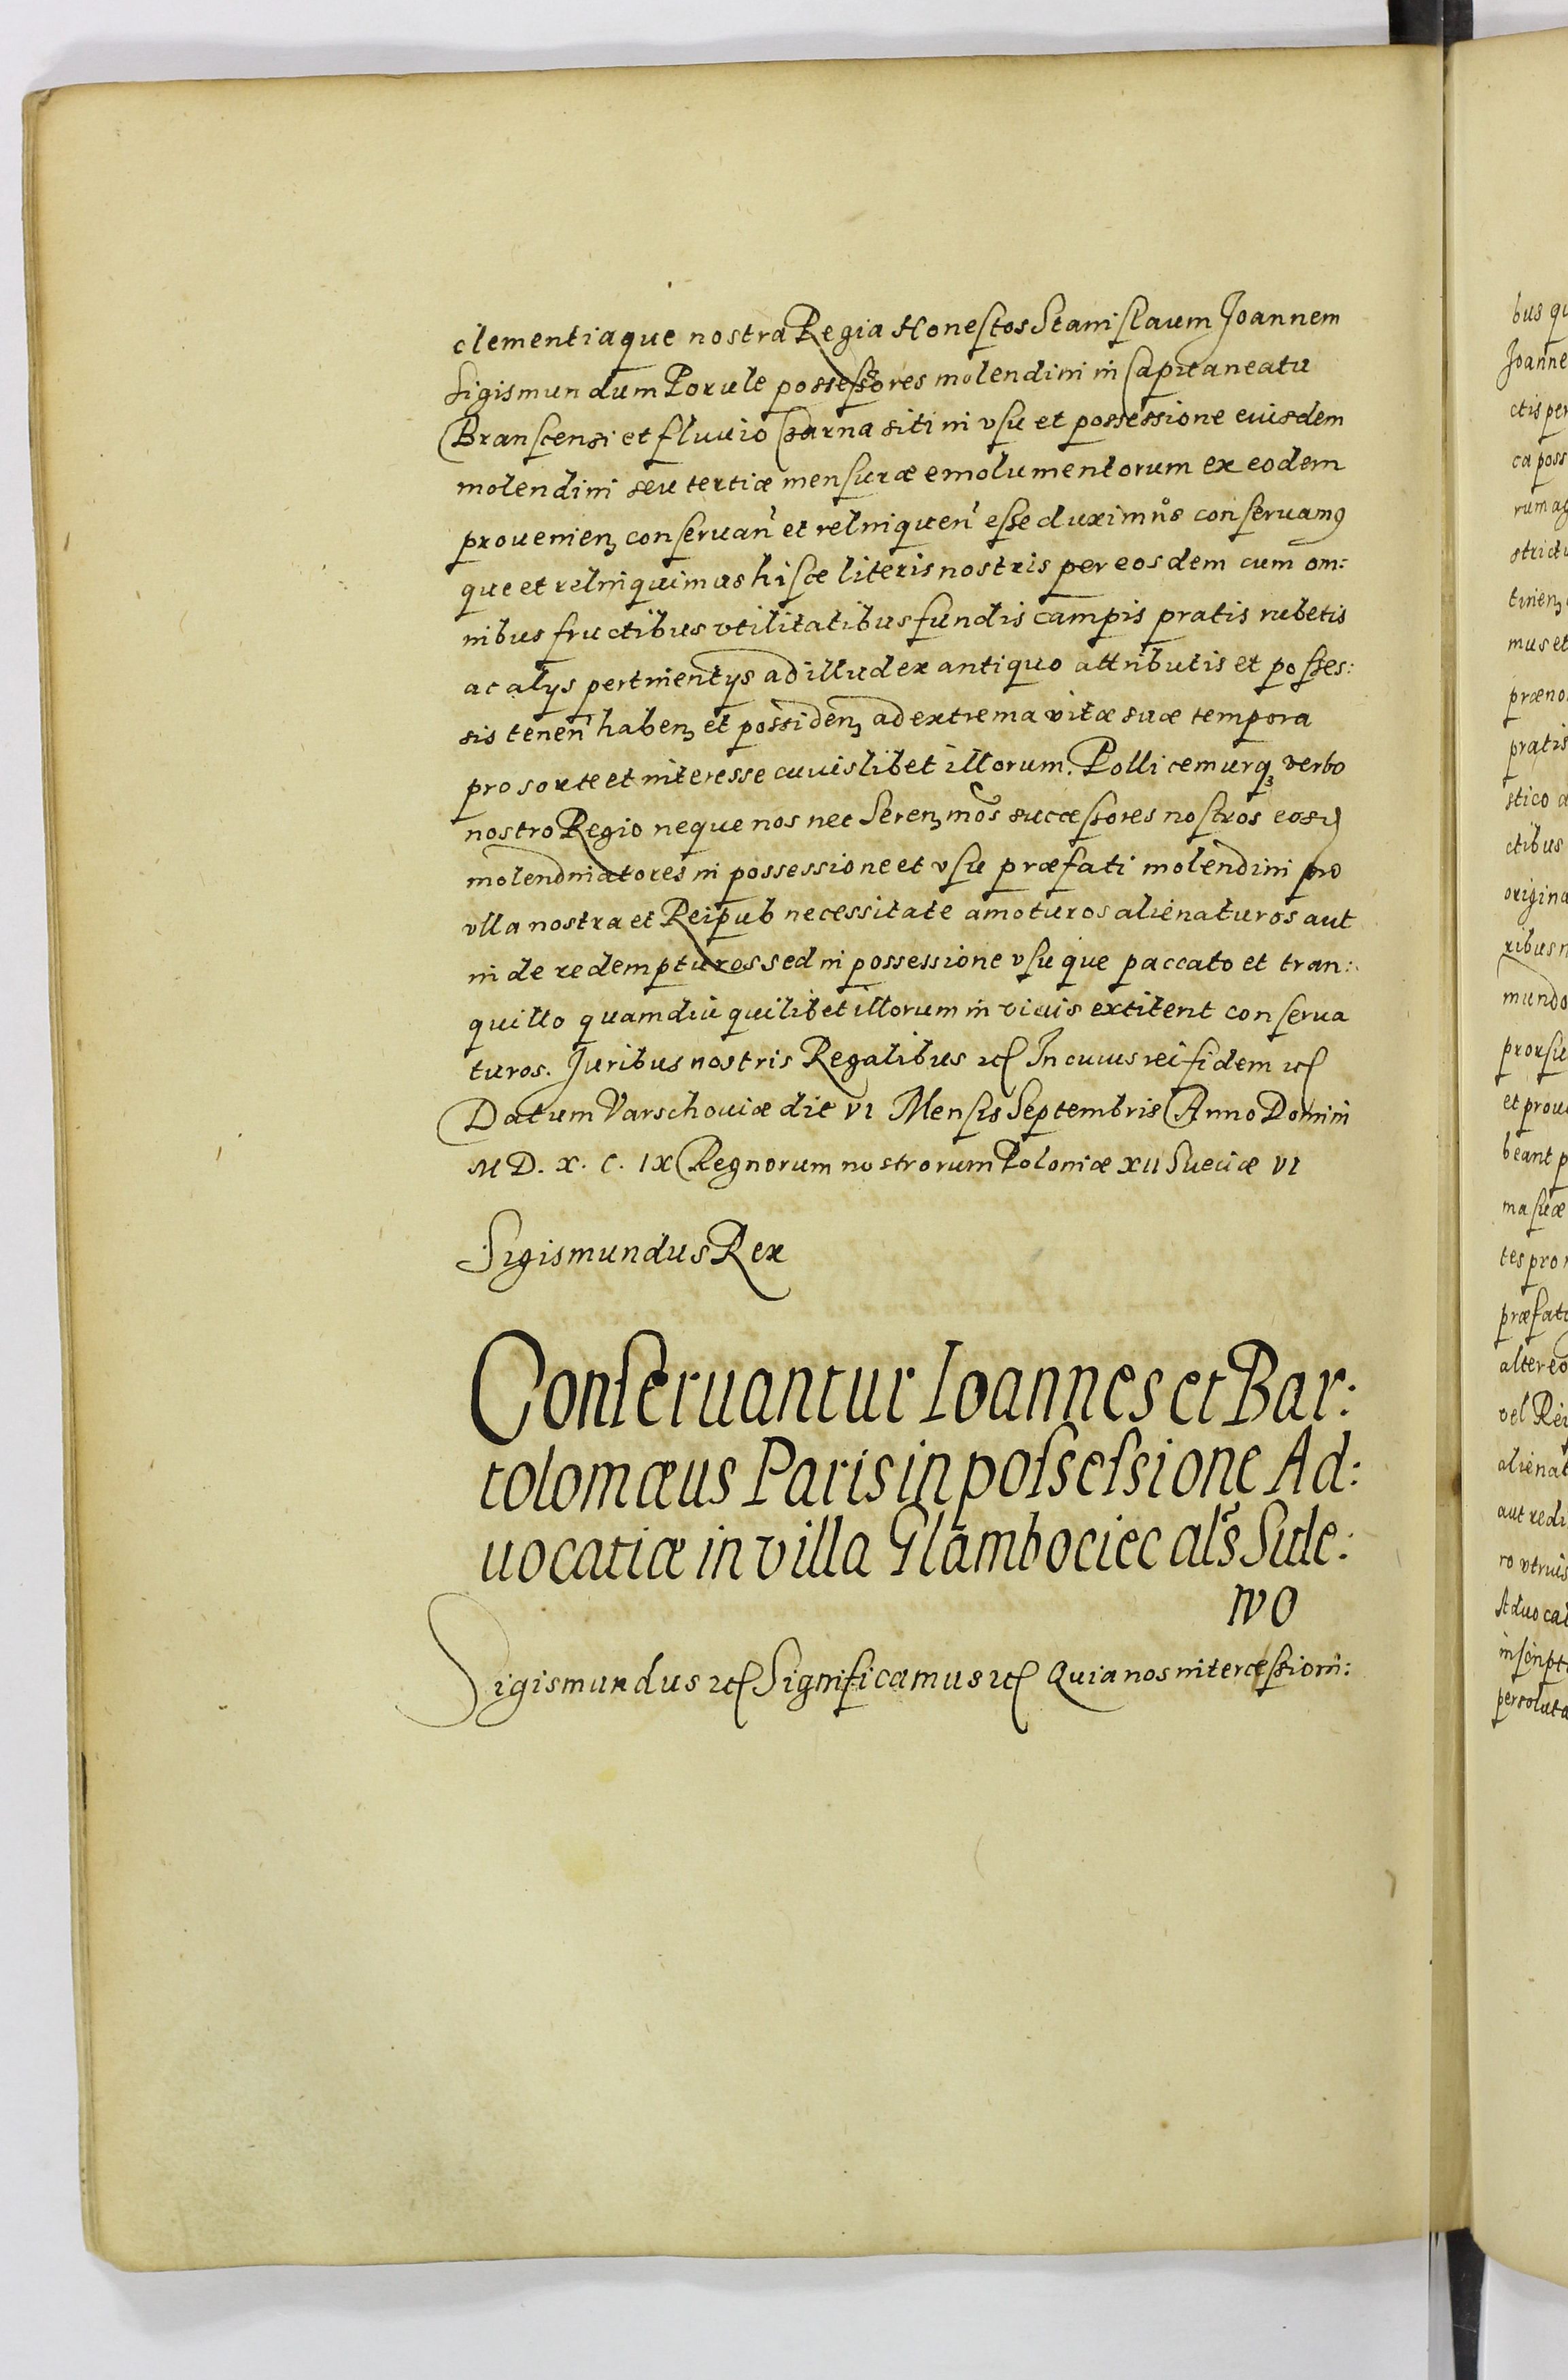 clementiaque nostra Regia Honestos Stanislaum Joannem
Sigismundum Porule possessores molendini in Capitaneatu
Branscensi et fluvio Czarna siti in vsu et possessione euisdem
molendini seu tertiæ mensuræ emolumentorum ex eodem
prouenienȝ conseruan̄ et relinquen̄ esse duximus conseruamꝰ
que et relinquimus hisce literis nostris per eosdem cum om:
nibus fructibus vtilitatibus fundis campis pratis rubetis
ac alys pertinentys ad illud ex antiquo attributis et posses:
sis tenen̄ habenȝ et possidenȝ ad extrema vitæ suæ tempora
pro sorte et interesse cuuislibet illorum. Pollicemurqȝ verbo
nostro Regio neque nos nec Serenȝmos successores nostros eosd
molendinatores in possessione et vsu præfati molendini pro
vlla nostra et Reipub necessitate amoturos alienaturos aut
inde redempturos sed in possessione vsuque paccato et tran:
quillo quamdiu quilibet illorum in viuis extiterit conserua
turos. Juribus nostris Regalibus etc In cuius rei fidem etc
Datum Varschouiæ die VI Mensis Septembris Anno Domini
M D. X. C. IX Regnorum nostrorum Poloniæ XII Sueciæ VI
Sigismundus Rex
Conseruantur Ioannes et Bar:
tolomæus Paris in possessione Ad:
uocatiæ in villa Glambociec als̄ Sule:
wo
Sigismundus etc Significamus etc Quia nos intercessioni:
bus qu
Joanne
ctis per
ca poss
rum ag
strictu
tinenȝ
mus et
præno
pratis
stico a
ctibus
origina
ribus n
mundo
prorsu
et prou
beant p
ma suæ
tes pro
præfat
altereo
vel Rei
alienat
aut redi
ro vtrius
Aduocat
inscript
persoluta